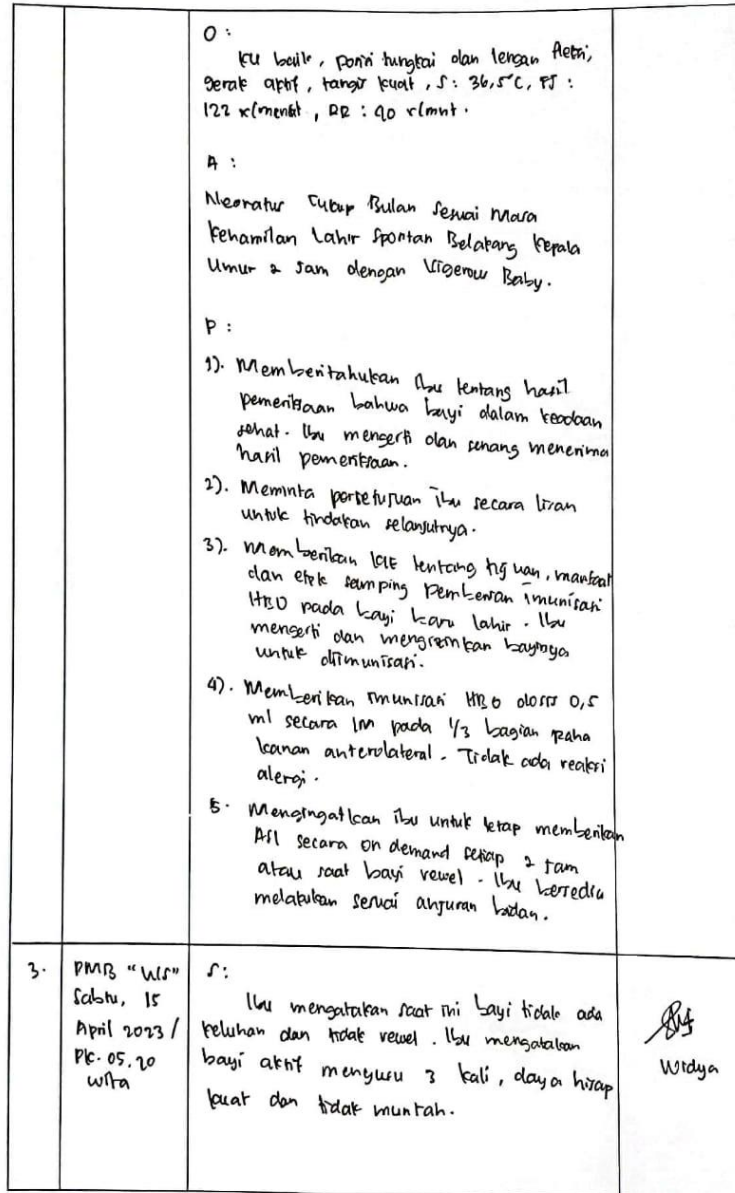 O :
KU baik, posisi tungkai dan lengan fleksi,
gerak aktif, tangis kuat, S: 36,5°C, FJ :
122 x/menit, RR : 40 x/mnt.
A :
Neonatus Cukup Bulan Sesuai Masa
Kehamilan Lahir Spontan Belakang Kepala
Umur 2 Jam dengan Vigerous Baby.
P :
1). Memberitahukan Ibu tentang hasil
pemeriksaan bahwa bayi dalam keadaan
sehat. Ibu mengerti dan senang menerima
hasil pemeriksaan.
2). Meminta persetujuan ibu secara lisan
untuk tindakan selanjutnya.
3). Memberikan KIE tentang tujuan, manfaat
dan efek samping Pemberian imunisasi
HB0 pada bayi baru lahir. Ibu
mengerti dan mengizinkan bayinya
untuk diimunisasi.
4). Memberikan imunisasi HB0 dosis 0,5
ml secara IM pada 1/3 bagian paha
kanan anterolateral. Tidak ada reaksi
alergi.
5. Mengingatkan ibu untuk tetap memberikan
ASI secara on demand setiap 2 jam
atau saat bayi rewel. Ibu bersedia
melakukan sesuai anjuran bidan.
3.
PMB "WS"
Sabtu, 15
April 2023 /
Pk. 05.20
wita
S:
Ibu mengatakan saat ini bayi tidak ada
keluhan dan tidak rewel. Ibu mengatakan
bayi aktif menyusu 3 kali, daya hisap
kuat dan tidak muntah.
Widya